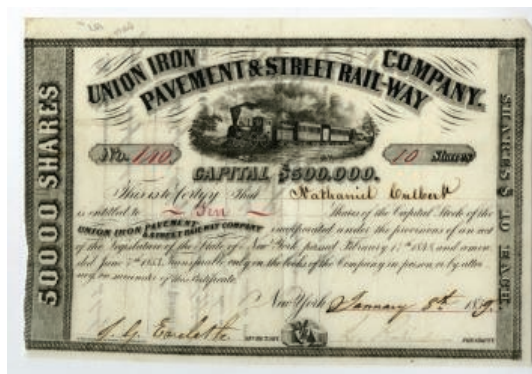 UNION IRON COMPANY.
PAVEMENT & STREET RAIL-WAY
No. 140. 10 Shares
CAPITAL $500.000.
50000 SHARES
SHARES $10 EACH
This is to certify That Nathaniel Culbert
is entitled to Ten Shares of the Capital Stock of the
UNION IRON PAVEMENT & STREET RAILWAY COMPANY incorporated under the provisions of an act
of the Legislature of the State of New York passed February 17th 1848, and amen
ded June 7th 1853. Transferable only on the books of the Company in person or by attor
ney on surrender of this Certificate.
New York January 8th 1859.
SECRETARY PRESIDENT